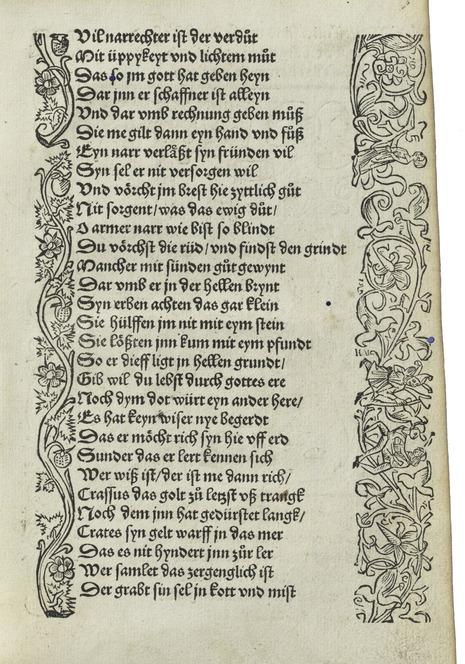 Vil narrechter ist der verdůt
Mit üppykeyt vnd lichtem můt
Das so jm gott hat geben heyn
Dar jnn er schaffner ist alleyn
Vnd dar vmb rechnung geben můß
Die me gilt dann eyn hand vnd fůß
Eyn narr verläßt syn fründen vil
Syn sel er nit versorgen wil
Vnd vörcht jm brest hie zyttlich gůt
Nit sorgent/ was das ewig důt/
O armer narr wie bist so blindt
Du vörchst die rüd/ vnd findst den grindt
Mancher mit sünden gůt gewynt
Dar vmb er jn der hellen brynt
Syn erben achten das gar klein
Sie hülffen jm nit mit eym stein
Sie lößten jnn kum mit eym pfundt
So er dieff ligt jn hellen grundt/
Gib wil du lebst durch gottes ere
Noch dym dot würt eyn ander here/
Es hat keyn wiser nye begerdt
Das er möcht rich syn hie vff erd
Sunder das er lert kennen sich
Wer wiß ist/ der ist me dann rich/
Crassus das golt zů letzst vß trangk
Noch dem jnn hat gedürstet langk/
Crates syn gelt warff jn das mer
Das es nit hyndert jnn zůr ler
Wer samlet das zergenglich ist
Der grabt sin sel jn kott vnd mist